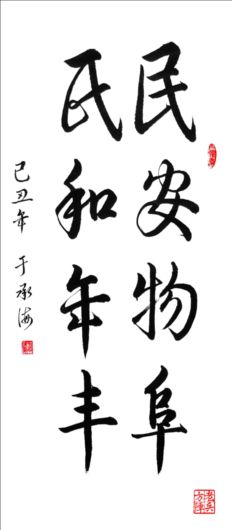 民安物阜
民和年丰
己丑年 于承海